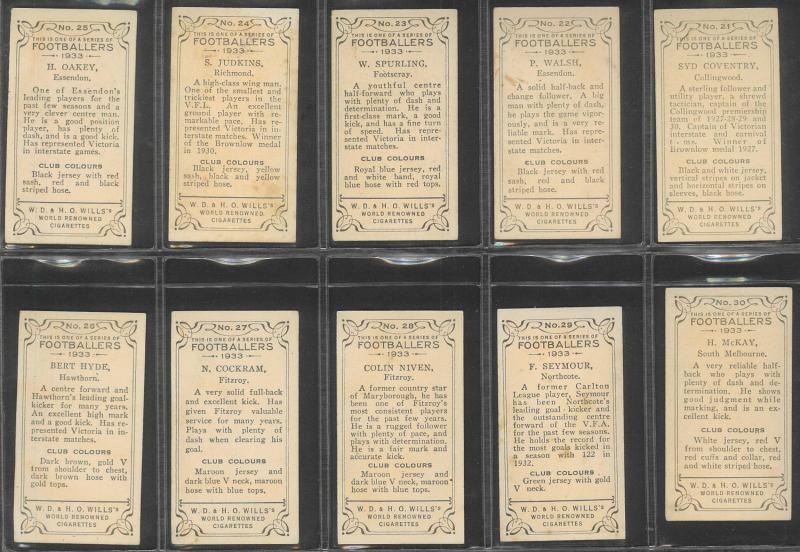 No. 25
THIS IS ONE OF A SERIES OF
FOOTBALLERS
1933
H. OAKEY,
Essendon.
One of Essendon's
leading players for the
past few seasons and a
very clever centre man.
He is a good position
player, has plenty of
dash, and is a good kick.
Has represented Victoria
in interstate games.
CLUB COLOURS
Black jersey with red
sash, red and black
striped hose.
W. D. & H. O. WILLS'S
WORLD RENOWNED
CIGARETTES
No. 24
THIS IS ONE OF A SERIES OF
FOOTBALLERS
1933
S. JUDKINS,
Richmond.
A high-class wing man.
One of the smallest and
trickiest players in the
V.F.L. An excellent
ground player with re-
markable pace. Has re-
presented Victoria in in-
terstate matches. Winner
of the Brownlow medal
in 1930.
CLUB COLOURS
Black jersey, yellow
sash, black and yellow
striped hose.
W. D. & H. O. WILLS'S
WORLD RENOWNED
CIGARETTES
No. 23
THIS IS ONE OF A SERIES OF
FOOTBALLERS
1933
W. SPURLING,
Footscray.
A youthful centre
half-forward who plays
with plenty of dash and
determination. He is a
first-class mark, a good
kick, and has a fine turn
of speed. Has repre-
sented Victoria in inter-
state matches.
CLUB COLOURS
Royal blue jersey, red
and white band, royal
blue hose with red tops.
W. D. & H. O. WILLS'S
WORLD RENOWNED
CIGARETTES
No. 22
THIS IS ONE OF A SERIES OF
FOOTBALLERS
1933
P. WALSH,
Essendon.
A solid half-back and
change follower. A big
man with plenty of dash,
he plays the game vigor-
ously, and is a very re-
liable mark. Has repre-
sented Victoria in inter-
state matches.
CLUB COLOURS
Black jersey with red
sash, red and black
striped hose.
W. D. & H. O. WILLS'S
WORLD RENOWNED
CIGARETTES
No. 21
THIS IS ONE OF A SERIES OF
FOOTBALLERS
1933
SYD COVENTRY,
Collingwood.
A sterling follower and
utility player, a shrewd
tactician, captain of the
Collingwood premiership
team of 1927-28-29 and
30. Captain of Victorian
interstate and carnival
Winner of
Brownlow medal 1927.
CLUB COLOURS
Black and white jersey,
vertical stripes on jacket
and horizontal stripes on
sleeves, black hose.
W. D. & H. O. WILLS'S
WORLD RENOWNED
CIGARETTES
No. 26
THIS IS ONE OF A SERIES OF
FOOTBALLERS
1933
BERT HYDE,
Hawthorn.
A centre forward and
Hawthorn's leading goal-
kicker for many years.
An excellent high mark
and a good kick. Has re-
presented Victoria in in-
terstate matches.
CLUB COLOURS
Dark brown, gold V
from shoulder to chest,
dark brown hose with
gold tops.
W. D. & H. O. WILLS'S
WORLD RENOWNED
CIGARETTES
No. 27
THIS IS ONE OF A SERIES OF
FOOTBALLERS
1933
N. COCKRAM,
Fitzroy.
A very solid full-back
and excellent kick. Has
given Fitzroy valuable
service for many years.
Plays with plenty of
dash when clearing his
goal.
CLUB COLOURS
Maroon jersey and
dark blue V neck, maroon
hose with blue tops.
W. D. & H. O. WILLS'S
WORLD RENOWNED
CIGARETTES
No. 28
THIS IS ONE OF A SERIES OF
FOOTBALLERS
1933
COLIN NIVEN,
Fitzroy.
A former country star
of Maryborough, he has
been one of Fitzroy's
most consistent players
for the past few years.
He is a rugged follower
with plenty of pace, and
plays with determination.
He is a fair mark and
accurate kick.
CLUB COLOURS
Maroon jersey and
dark blue V neck, maroon
hose with blue tops.
W. D. & H. O. WILLS'S
WORLD RENOWNED
CIGARETTES
No. 29
THIS IS ONE OF A SERIES OF
FOOTBALLERS
1933
F. SEYMOUR,
Northcote.
A former Carlton
League player, Seymour
has been Northcote's
leading goal-kicker and
the outstanding centre
forward of the V.F.A.
for the past few seasons.
He holds the record for
the most goals kicked in
a season with 122 in
1932.
CLUB COLOURS
Green jersey with gold
V neck.
W. D. & H. O. WILLS'S
WORLD RENOWNED
CIGARETTES
No. 30
THIS IS ONE OF A SERIES OF
FOOTBALLERS
1933
H. McKAY,
South Melbourne.
A very reliable half-
back who plays with
plenty of dash and de-
termination. He shows
good judgment while
marking, and is an ex-
cellent kick.
CLUB COLOURS
White jersey, red V
from shoulder to chest,
red cuffs and collar, red
and white striped hose.
W. D. & H. O. WILLS'S
WORLD RENOWNED
CIGARETTES